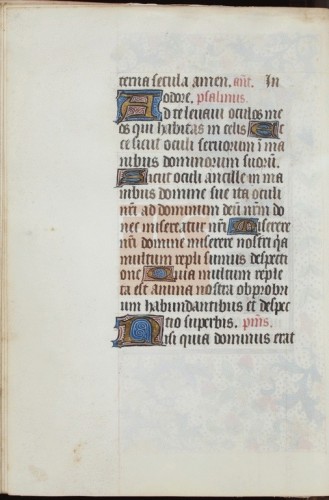 terna secula amen. añt. In
odore. psalmus.
Ad te levavi oculos me
os qui habitas in celis Ec
ce sicut oculi servorum ī ma
nibus dominorum suoru̅.
Sicut oculi ancille in ma
nibus domine sue ita oculi
nr̃i ad dominum deu̅ nr̃m do
nec misereatur nr̃i Miserere
nr̃i domine miserere nostri q̃a
multum repleti sumus despecti
one Quia multum reple
ta est anima nostra obprobri
um habundantibus et despec
tio superbis. ps̃ms.
Nisi quia dominus erat